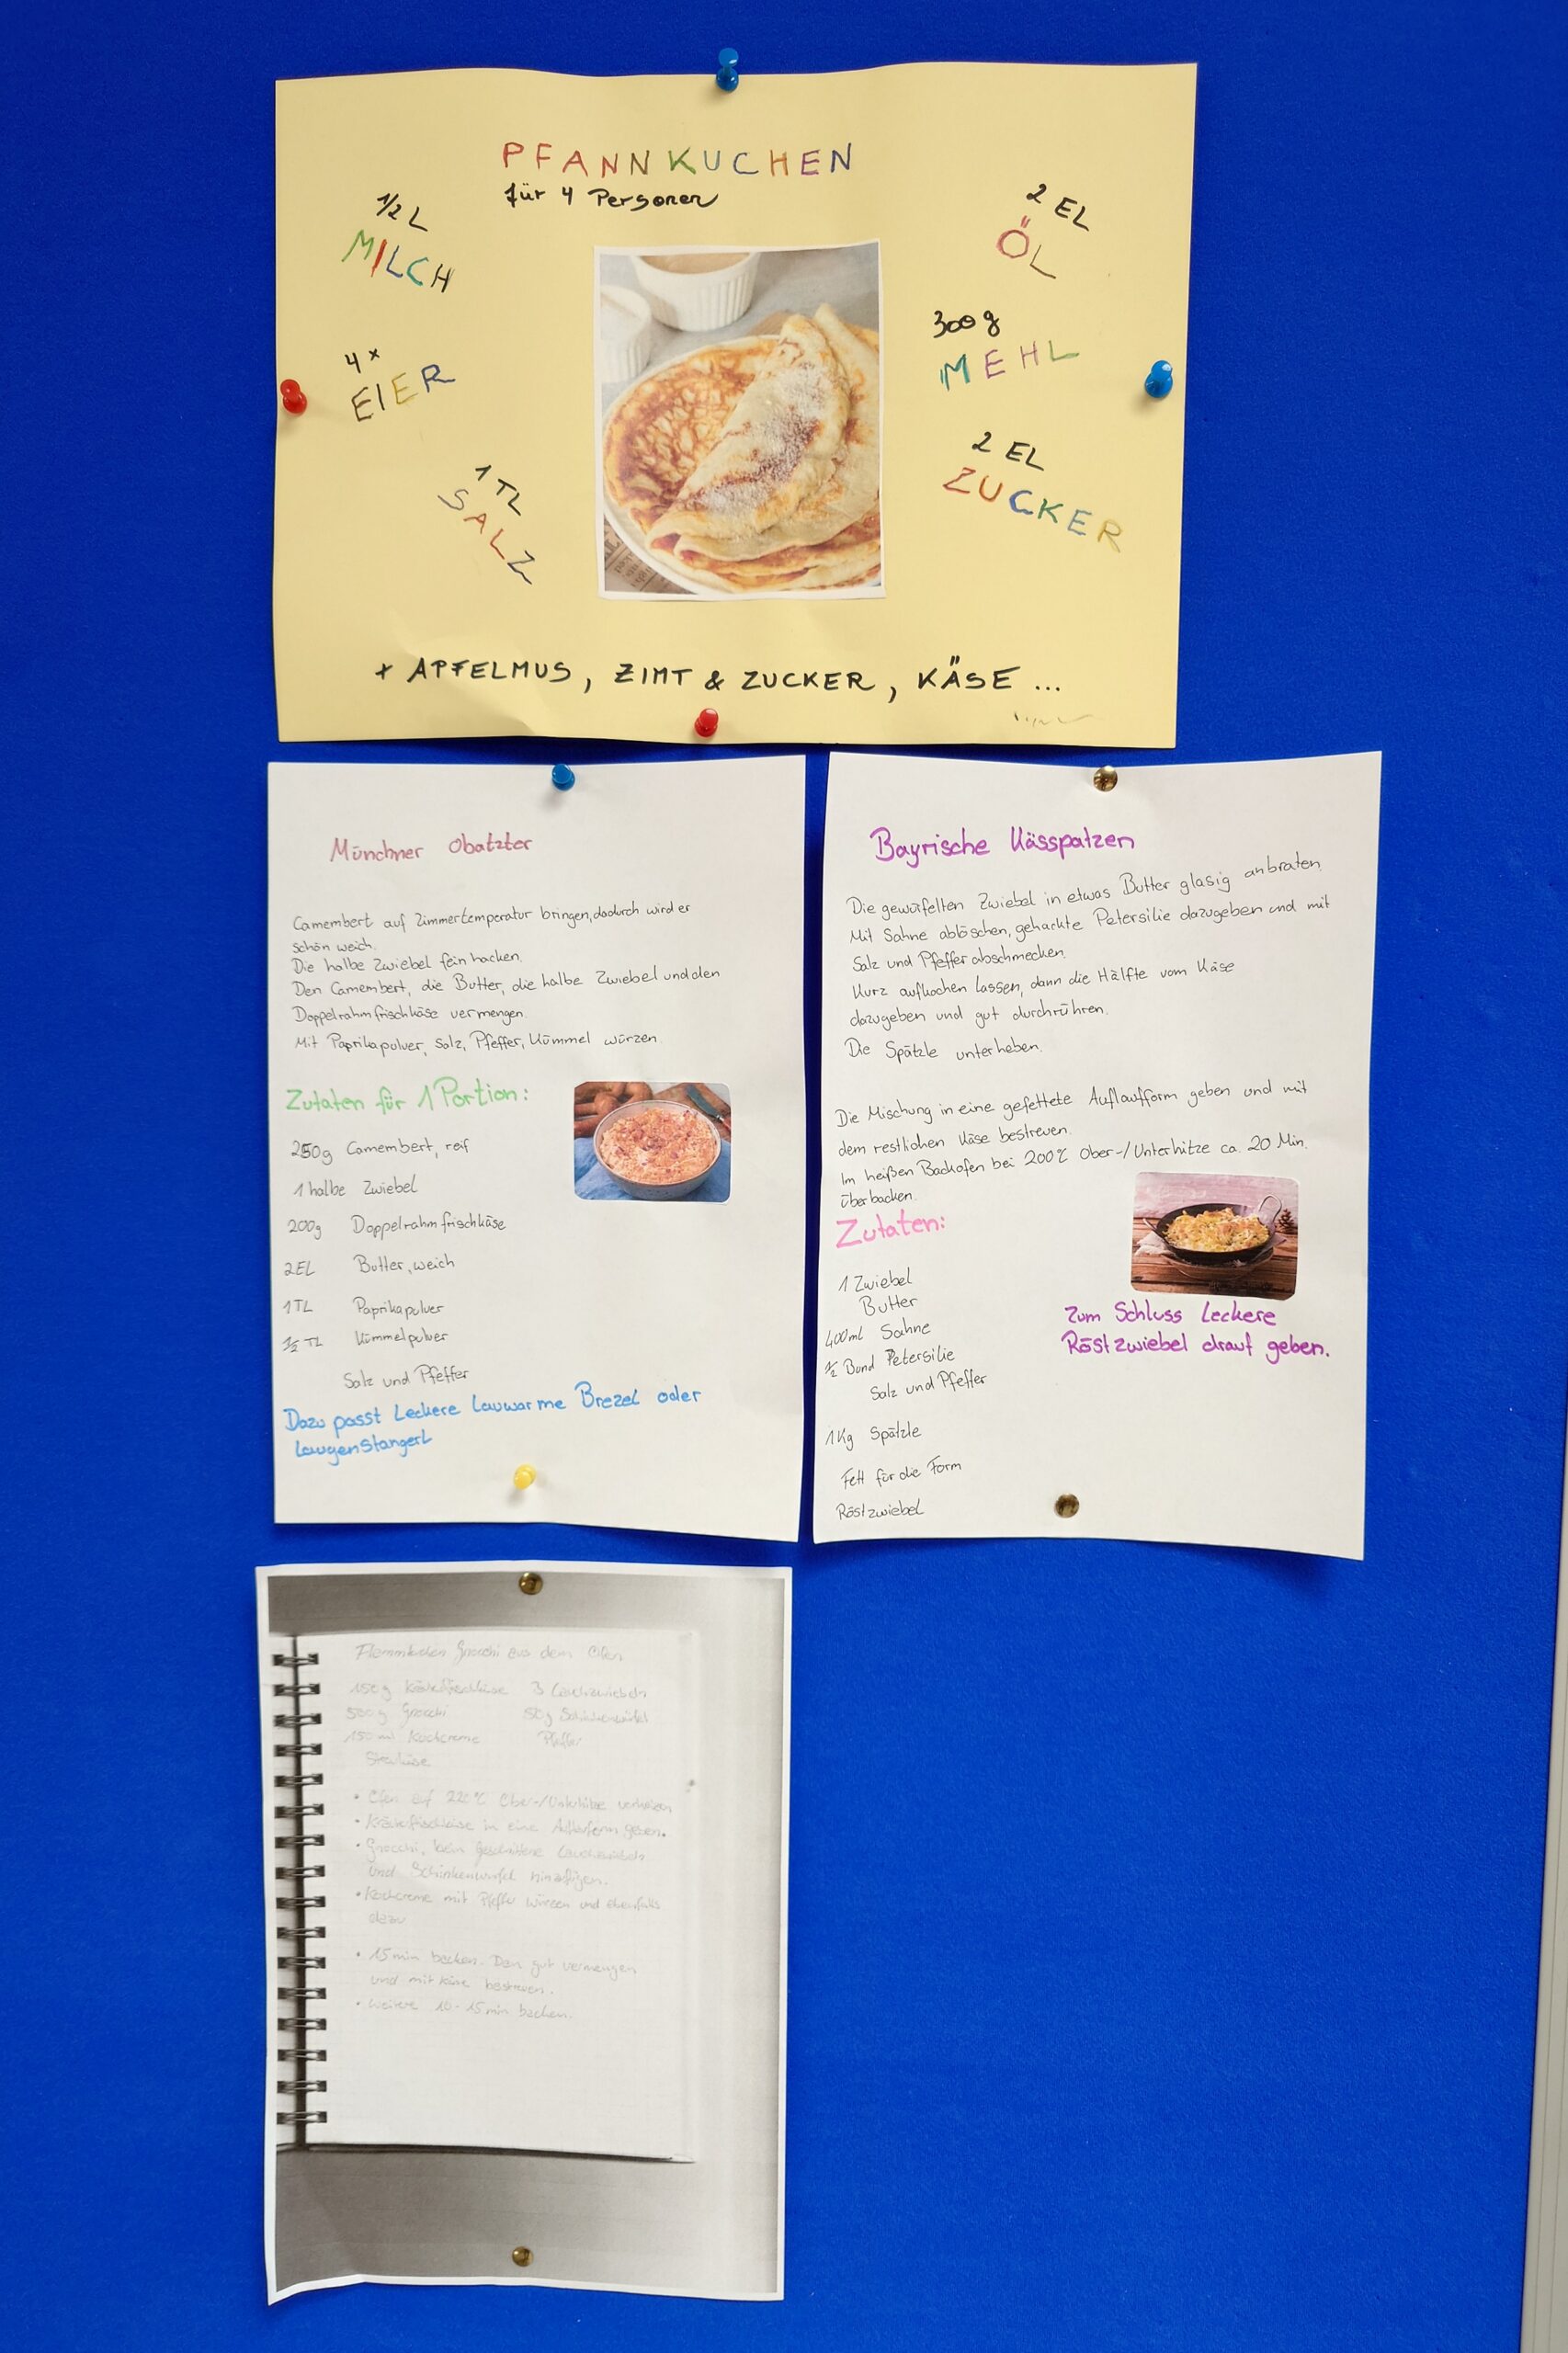 PFANNKUCHEN
für 4 Personen
1/2 L
MILCH
4x
EIER
1 TL
SALZ
2 EL
ÖL
300g
MEHL
2 EL
ZUCKER
+ APFELMUS, ZIMT & ZUCKER, KÄSE ...
Münchner Obatzter
Camembert auf Zimmertemperatur bringen, dadurch wird er
schön weich.
Die halbe Zwiebel fein hacken.
Den Camembert, die Butter, die halbe Zwiebel und den
Doppelrahmfrischkäse vermengen.
Mit Paprikapulver, Salz, Pfeffer, Kümmel würzen.
Zutaten für 1 Portion:
250g Camembert, reif
1 halbe Zwiebel
200g Doppelrahmfrischkäse
2EL Butter, weich
1TL Paprikapulver
1/2 TL Kümmelpulver
Salz und Pfeffer
Dazu passt Leckere Lauwarme Brezel oder
Laugenstangerl
Bayrische Kässpatzen
Die gewürfelten Zwiebel in etwas Butter glasig anbraten.
Mit Sahne ablöschen, gehackte Petersilie dazugeben und mit
Salz und Pfeffer abschmecken.
Kurz aufkochen lassen, dann die Hälfte vom Käse
dazugeben und gut durchrühren.
Die Spätzle unterheben.
Die Mischung in eine gefettete Auflaufform geben und mit
dem restlichen Käse bestreuen.
Im heißen Backofen bei 200°C Ober-/Unterhitze ca. 20 Min.
überbacken.
Zutaten:
1 Zwiebel
Butter
400ml Sahne
1/2 Bund Petersilie
Salz und Pfeffer
1Kg Spätzle
Fett für die Form
Röstzwiebel
Zum Schluss Leckere
Röstzwiebel drauf geben.
Flammkuchen Gnocchi aus dem Ofen
150g Kräuterfrischkäse 3 Lauchzwiebeln
500g Gnocchi 50g Schinkenwürfel
150ml Kochcreme Pfeffer
Streukäse
• Ofen auf 220°C Ober-/Unterhitze vorheizen
• Kräuterfrischkäse in eine Auflaufform geben.
• Gnocchi, klein geschnittene Lauchzwiebeln
und Schinkenwürfel hinzufügen.
• Kochcreme mit Pfeffer würzen und ebenfalls
dazu
• 15 min backen. Dann gut vermengen
und mit Käse bestreuen.
• weitere 10-15 min backen.